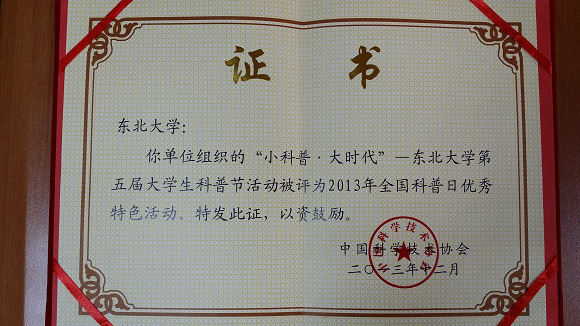 证 书
东北大学：
你单位组织的“小科普·大时代”—东北大学第
五届大学生科普节活动被评为2013年全国科普日优秀
特色活动。特发此证，以资鼓励。
中国科学技术协会
二〇一三年十二月
中国科学技术协会